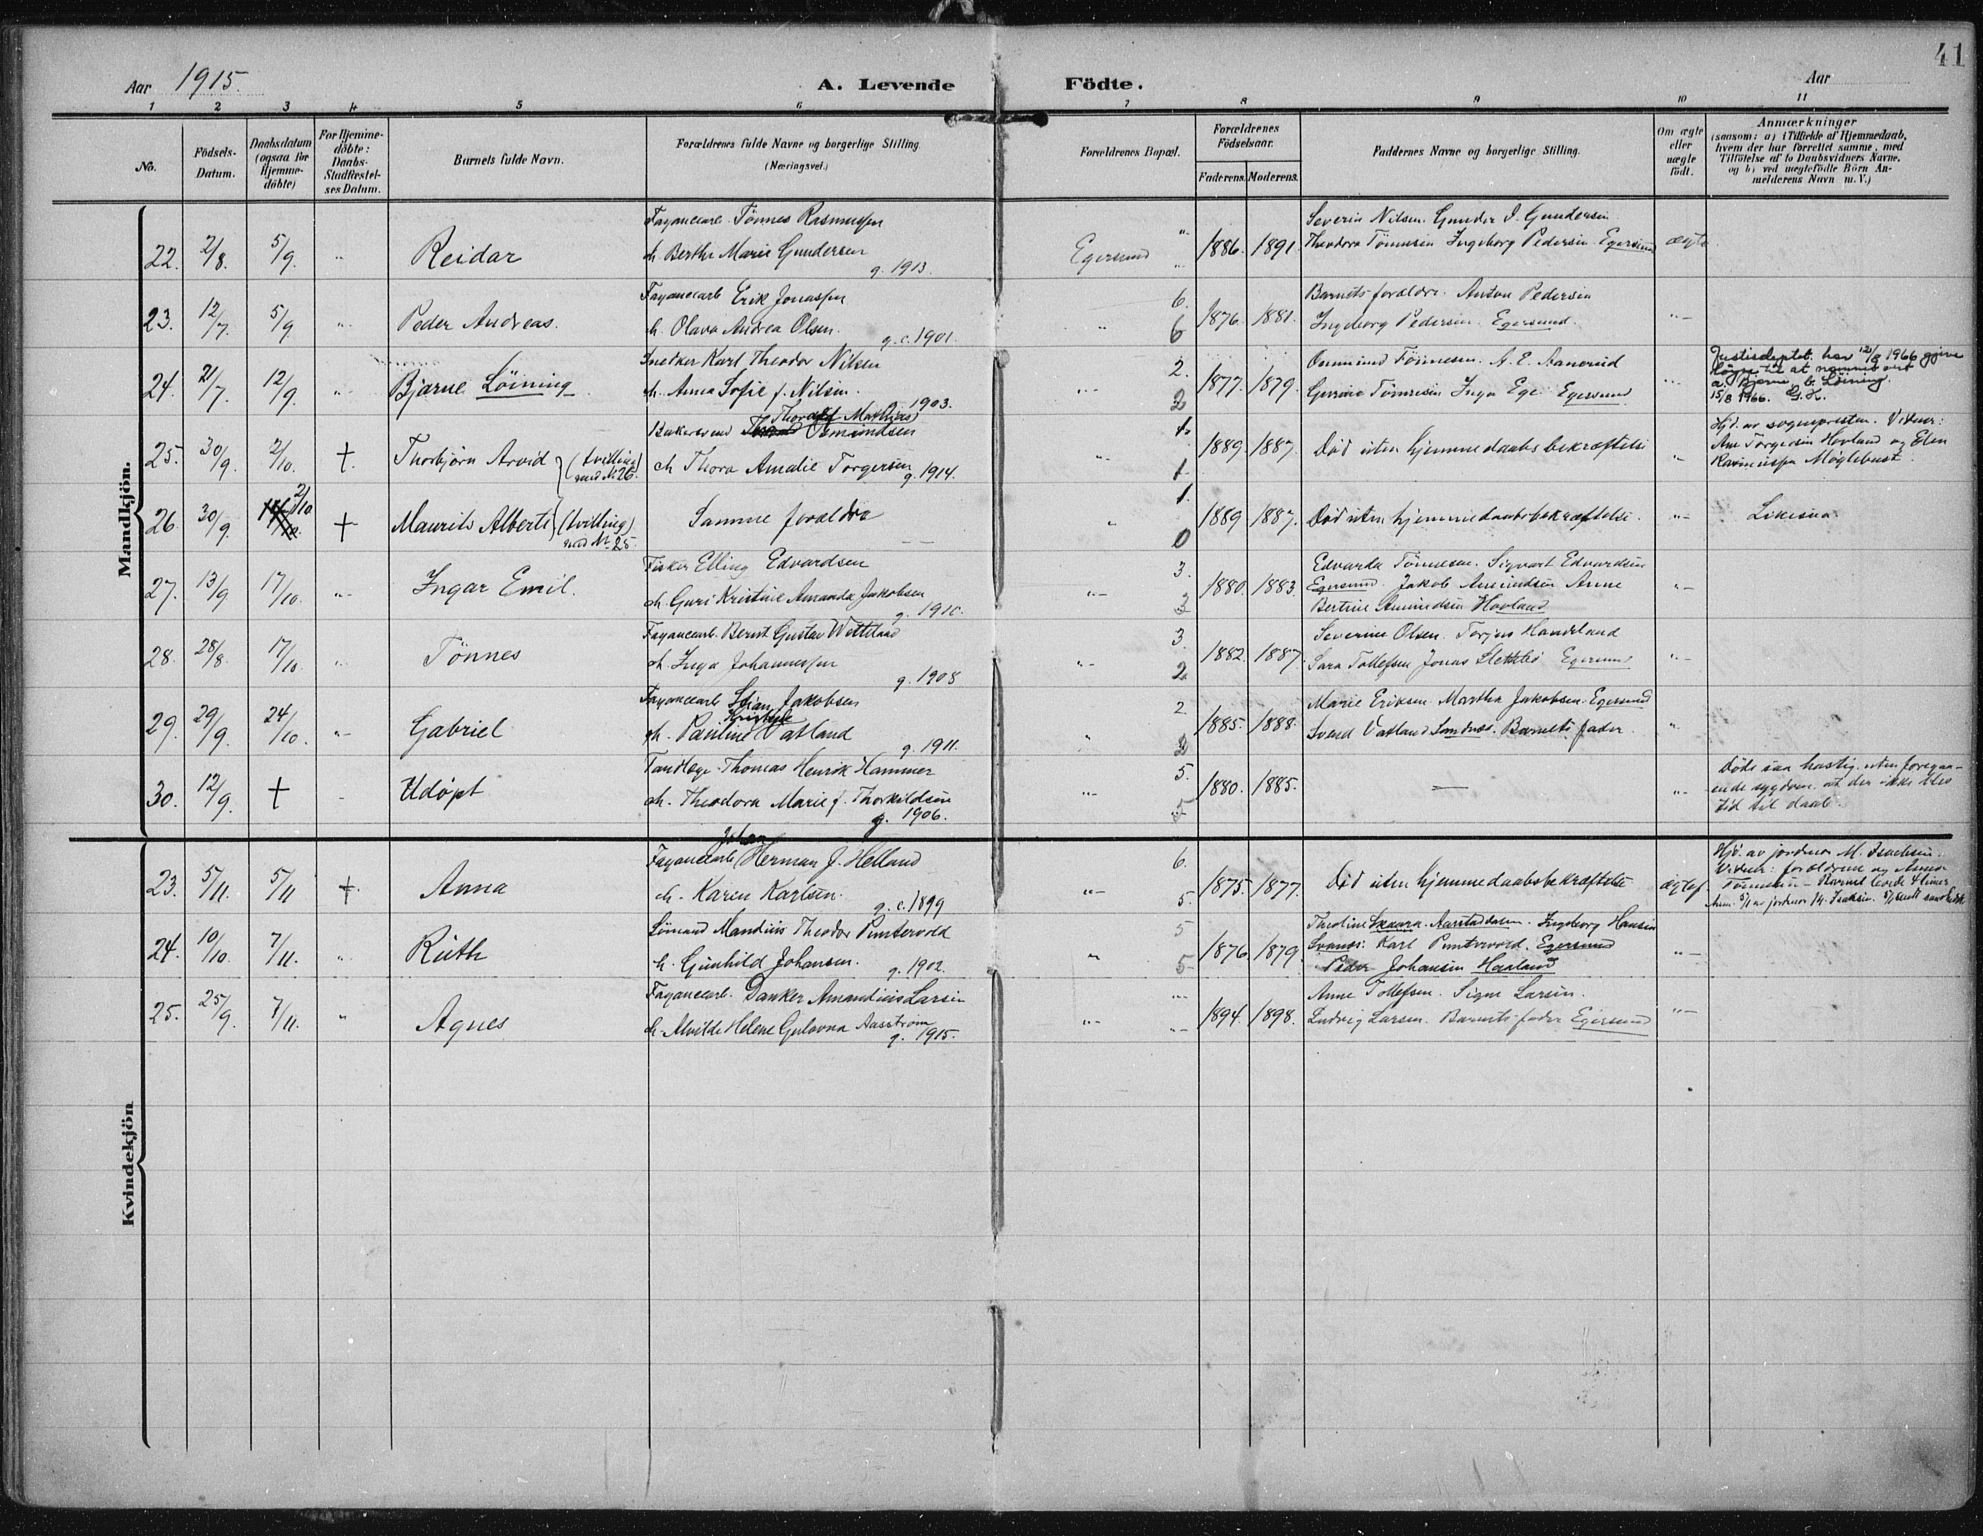 41
Aar 1915.
A. Levende Födte.
Aar
1 2 3 4 5 6 7 8 9 10 11
No.
Födsels-
Datum.
Daabsdatum
(ogsaa for
Hjemme-
döbte)
For Hjemme-
döbte:
Daabs-
Stadfæstel-
ses Datum.
Barnets fulde Navn.
Forældrenes fulde Navne og borgerlige Stilling
(Næringsvei.)
Forældrenes Bopæl.
Forældrenes
Födselsaar.
Faderens. Moderens.
Faddernes Navne og borgerlige Stilling.
Om ægte
eller
uægte
födt.
Anmærkninger
(saasom: a) i Tilfælde af Hjemmedaab,
hvem der har forrettet samme, med
Tilföielse af to Daabsvidners Navne,
og b) ved uægtefödte Börn An-
melderens Navn m. V.)
Mandkjön.
22. 2/8. 5/9. " Reidar
Fayancearb. Tönnes Rasmussen
h. Berthe Marie Gundersen
g. 1913.
Egersund
1886. 1891.
Severin Nilsen. Gunder J. Gundersen
Theodora Tönnesen Ingeborg Pedersen Egersund
ægte
23. 12/7. 5/9. " Peder Andreas.
Fayancearb Erik Jonassen
h. Olava Andrea Olsen.
g. c. 1901.
" 6. 6
1876. 1881.
Barnets forældre. Anton Pedersen
Ingeborg Pedersen. Egersund.
"
24. 21/7. 12/9. " Bjarne Löining
Snedker Karl Theodor Nilsen
h. Anna Sofie f. Nilsen.
1903.
" 2. 2
1877. 1879.
Onmund Tönnesen. A. E. Aanerud
Tönnesen Inga Ege. Egersund
Justisdeptet. har 12/8 1966 gjeve
löyve til at namnet vert
a. Bjarne, b. Löining.
15/8 1966. G. H.
25. 30/9. 2/10. +. Thorbjörn Arvid (tvilling med N. 26.
Bakersvend Thoralf Mathias Osmundsen
h Thora Amalie Torgersen
g. 1914.
" 1. 1
1889. 1887.
Död uten hjemmedaabsbekræftelse
"
Hjd. av sognepresten. Vidner:
Ane Torgersen Hovland og Elen
Rasmussen Möglebust.
26. 30/9. 2/10 + Maurits Alberti (tvilling) med N. 25.
Samme forældre
" 1. 0
1889 1887.
Död uten hjemmedaabsbekræftelse.
"
Likesaa
27. 13/9 17/10. " Ingar Emil.
Fisker Elling Edvardsen
h. Guri Kristine Amanda Jakobsen
g. 1910.
" 3. 3
1880. 1883.
Edvarda Tönnesen. Sigvart Edvardsen
Egersund. Jakob Amundsen Anne
Bertine Amundsen Hovland
"
28. 28/8. 17/10. " Tönnes
Fayancearb. Bernt Gustav Wetteland
h. Inga Johannessen
g. 1908
" 3. 2.
1882. 1887.
Severine Olsen. Torjus Handeland
Sara Tollefsen Jonas Slettebö Egersund
"
29. 29/9. 24/10. " Gabriel
Fayancearb Stian Jakobsen
h. Pauline Vatland
g. 1911.
" 2 2
1885. 1888.
Marie Eriksen. Martha Jakobsen. Egersund
Svend Vatland Sandnes. Barnets fader.
"
30. 12/9. + - Udöpt
Tandlæge Thomas Henrik Hammer
h. Theodora Marie f. Thorkildsen
g. 1906.
" 5. 5
1880. 1885.
—
"
Döde saa hastig, uten foregaa-
ende sygdom at der ikke blev
tid til daab.
Kvindekjön
23. 5/11. 5/11 +. Anna
Johan
Fayancearb Herman J. Helland
h. Karen Karlsen.
g. c. 1899
" 6. 5.
1875. 1877.
Död uten hjemmedaabsbekræftelse
ægtef.
Hjd. av jordmor M. Isachsen.
Vidner: forældrene og
Tönnesen – Barnet levde 4 timer
24. 10/10. 7/11. " Ruth
Mandius Theodor Puntervold
h. Gunhild Johansen.
g. 1902.
" 5 5
1876. 1879.
Theoline Skaara. Aarstaddalen. Ingeborg Hansen
Svanes: Karl Puntervold. Egersund
Peder Johansen Haaland
"
25. 25/9. 7/11. " Agnes
Fayancearb. Danker Amandius Larsen
h. Alvilde Helene Gulavna Aasström
g. 1915.
"
1894. 1898.
Anne Tollefsen. Signe Larsen.
Ludvig Larsen. Barnets fader Egersund
"